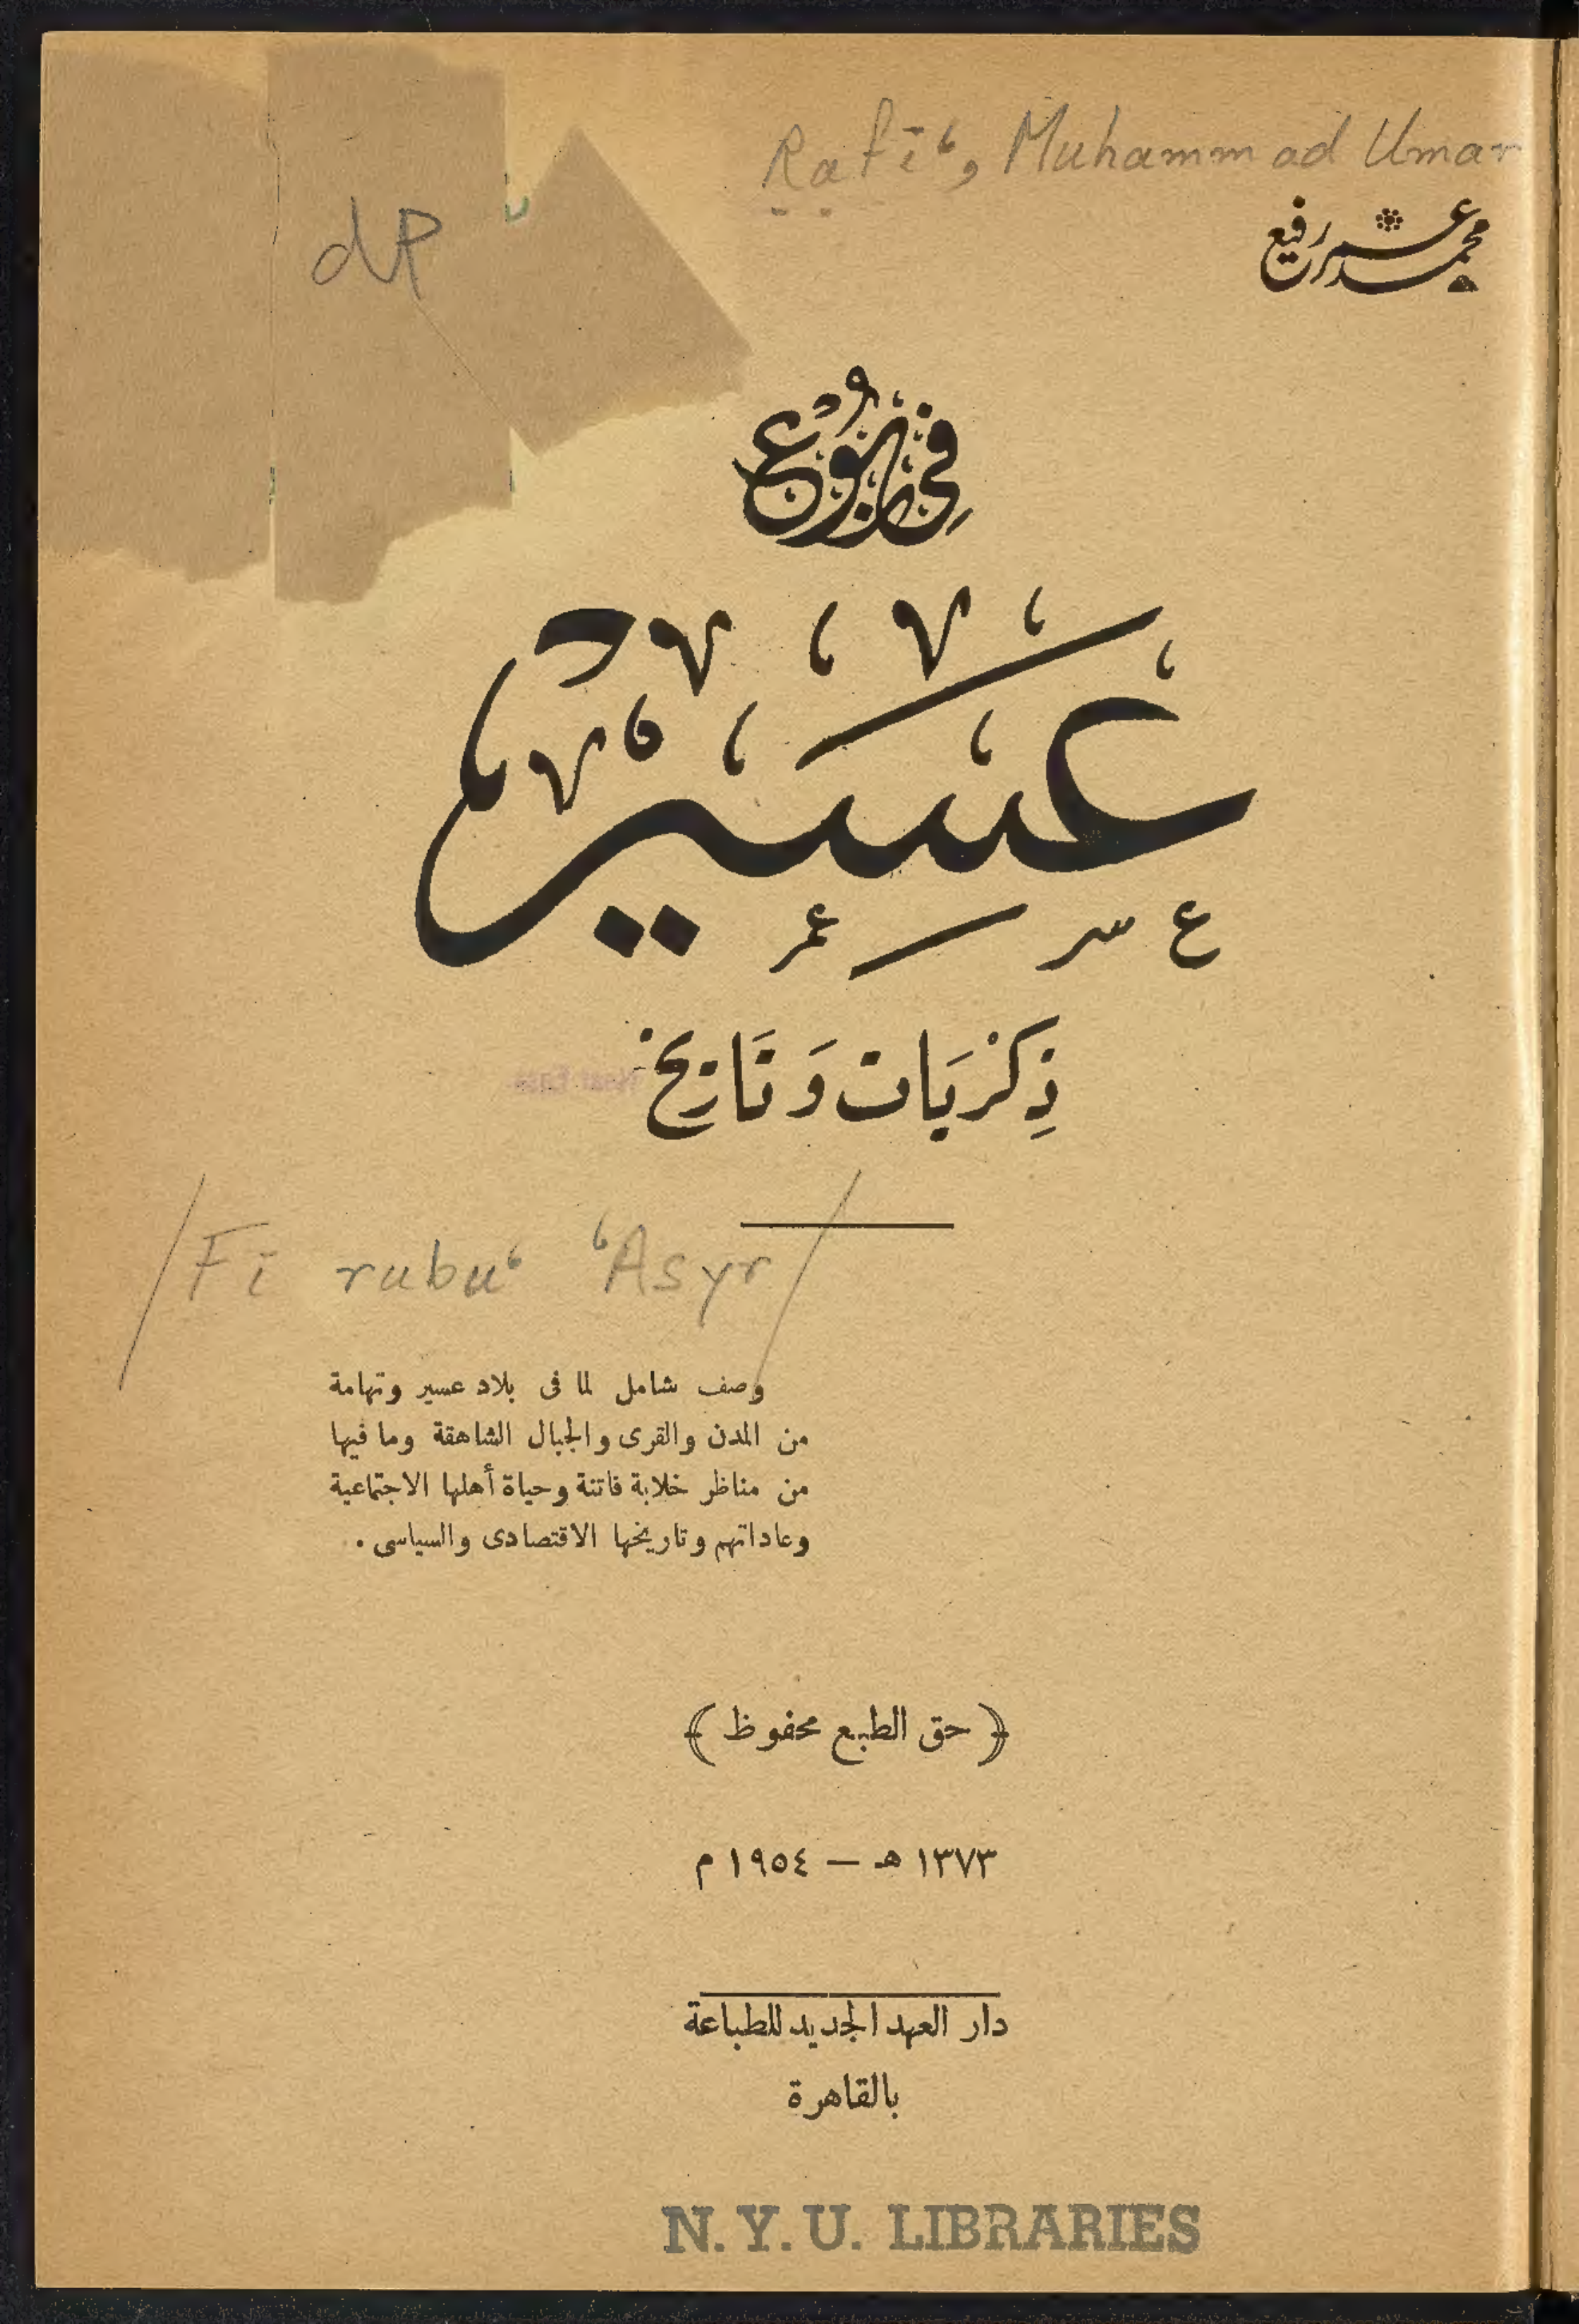 Rafī‘, Muhammad Umar
محمد عمر رفيع
dP
في ربوع
عسير
ذِكْرَيَات وَتَاريخ
/Fī rubu‘ ‘Asyr/
وصف شامل لما فى بلاد عسير وتهامة
من المدن والقرى والجبال الشاهقة وما فيها
من مناظر خلابة فاتنة وحياة أهلها الاجتماعية
وعاداتهم وتاريخها الاقتصادى والسياسى .
﴿ حق الطبع محفوظ ﴾
١٣٧٣ هـ — ١٩٥٤ م
دار العهد الجديد للطباعة
بالقاهرة
N.Y.U. LIBRARIES